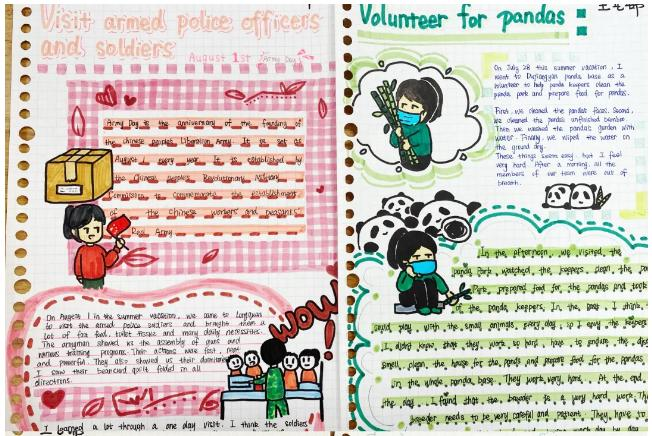 Visit armed police officers
and soldiers
August 1st Army Day
Army Day is the anniversary of the founding of
the chinese people's Liberation Army. It is set as
August 1 every year. It is established by
the Chinese People's Revolutionary Military
Commission to commemorate the establishment
of the Chinese workers' and peasants'
Red Army
On August 1 in the summer vacation, we came to
to visit the armed police soldiers and brought them a
lot of fire food, toilet tissues and many daily necessities.
The armyman showed us the assembly of guns and
various training programs. Their actions were fast, neat
and powerful. They also showed us their dormitories
I saw their beancurd quilt folded in all
directions.
WOW!
I learned a lot through a one day visit. I think the soldiers
Volunteer for pandas
On July 28 this summer vacation, I
went to Dujiangyan panda base as a
volunteer to help panda keepers clean the
panda park and prepare food for pandas.
First, we cleaned the pandas' feces. Second,
we cleaned the pandas' unfinished bamboo.
Then we washed the pandas' garden with
water. Finally, we wiped the water on
the ground dry.
These things seem easy, but I feel
very hard. After a morning, all the
members of our team were out of
breath.
In the afternoon, we visited the
panda Park, watched the keepers clean the panda
Park, prepared food for the pandas and took
of the panda keepers. In the past, I think,
could play with the small animals every day, so I envy the keepers
I didn't know that they work so hard, have to endure the
smell, clean the house for the pandas and prepare food for the pandas
in the whole panda base. They work very hard. At the end
the day, I found that the breeder is a very hard work. The
breeder needs to be very careful and patient. They have to
work day by day